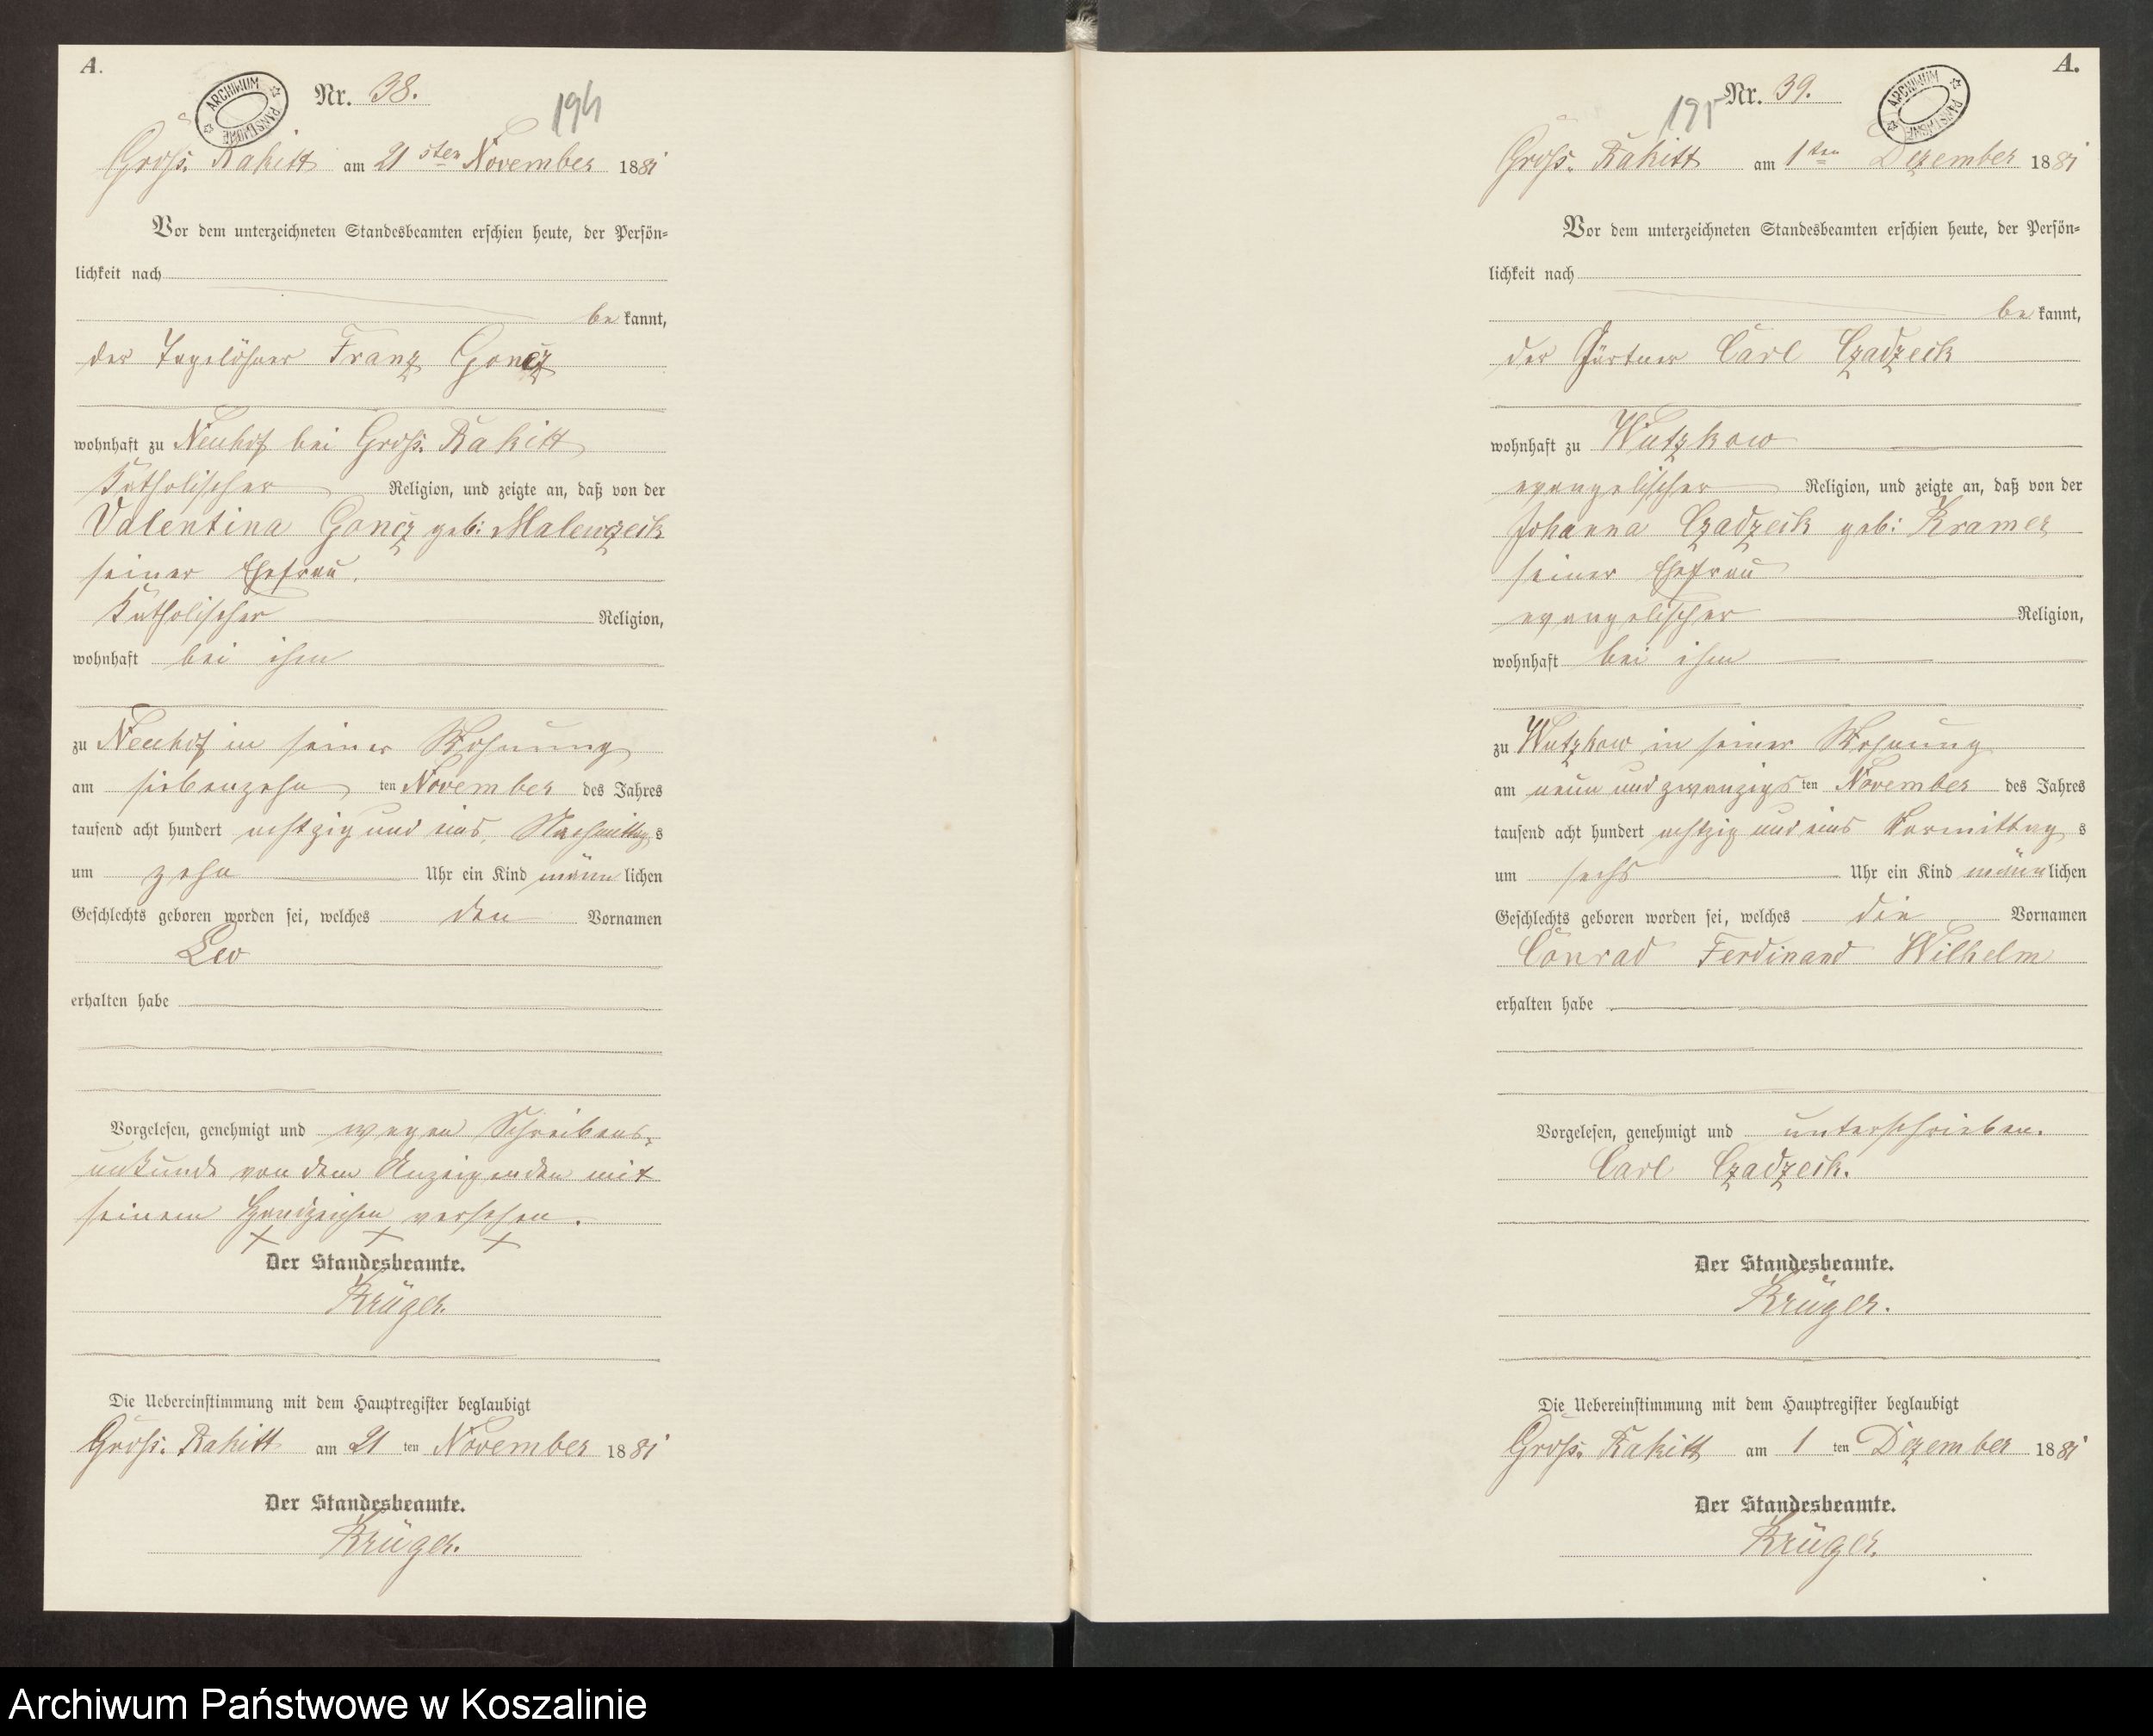 A.
ARCHIWUM PAŃSTWOWE
Nr. 38.
194
Groß. Rakitt am 21 sten November 1881
Vor dem unterzeichneten Standesbeamten erschien heute, der Persön-
lichkeit nach
be kannt,
der Tagelöhner Franz Goncz
wohnhaft zu Neuhof bei Groß. Rakitt
Katholischer Religion, und zeigte an, daß von der
Valentina Goncz geb: Malewzeck
seiner Ehefrau.
Katholischer Religion,
wohnhaft bei ihm
zu Neuhof in seiner Wohnung
am siebenzehn ten November des Jahres
tausend acht hundert achtzig und eins, Nachmittag s
um zehn Uhr ein Kind männ lichen
Geschlechts geboren worden sei, welches den Vornamen
Leo
erhalten habe
Vorgelesen, genehmigt und wegen Schreibens-
unkunde von dem Anzeigenden mit
seinem Handzeichen versehen.
X X X
Der Standesbeamte.
Krüger.
Die Uebereinstimmung mit dem Hauptregister beglaubigt
Groß. Rakitt am 21 ten November 1881
Der Standesbeamte.
Krüger.
A.
ARCHIWUM PAŃSTWOWE
Nr. 39.
195
Groß. Rakitt am 1 ten Dezember 1881
Vor dem unterzeichneten Standesbeamten erschien heute, der Persön-
lichkeit nach
be kannt,
der Gärtner Carl Czadzeck
wohnhaft zu Wutzkow
evangelischer Religion, und zeigte an, daß von der
Johanna Czadzeck geb: Kramer
seiner Ehefrau
evangelischer Religion,
wohnhaft bei ihm
zu Wutzkow in seiner Wohnung
am neun und zwanzigs ten November des Jahres
tausend acht hundert achtzig und eins Vormittag s
um sechs Uhr ein Kind männ lichen
Geschlechts geboren worden sei, welches die Vornamen
Conrad Ferdinand Wilhelm
erhalten habe
Vorgelesen, genehmigt und unterschrieben.
Carl Czadzeck.
Der Standesbeamte.
Krüger.
Die Uebereinstimmung mit dem Hauptregister beglaubigt
Groß. Rakitt am 1 ten Dezember 1881
Der Standesbeamte.
Krüger.
Archiwum Państwowe w Koszalinie